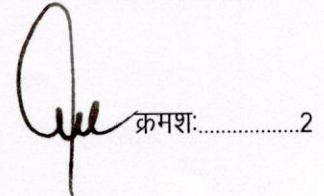 क्रमशः.................2